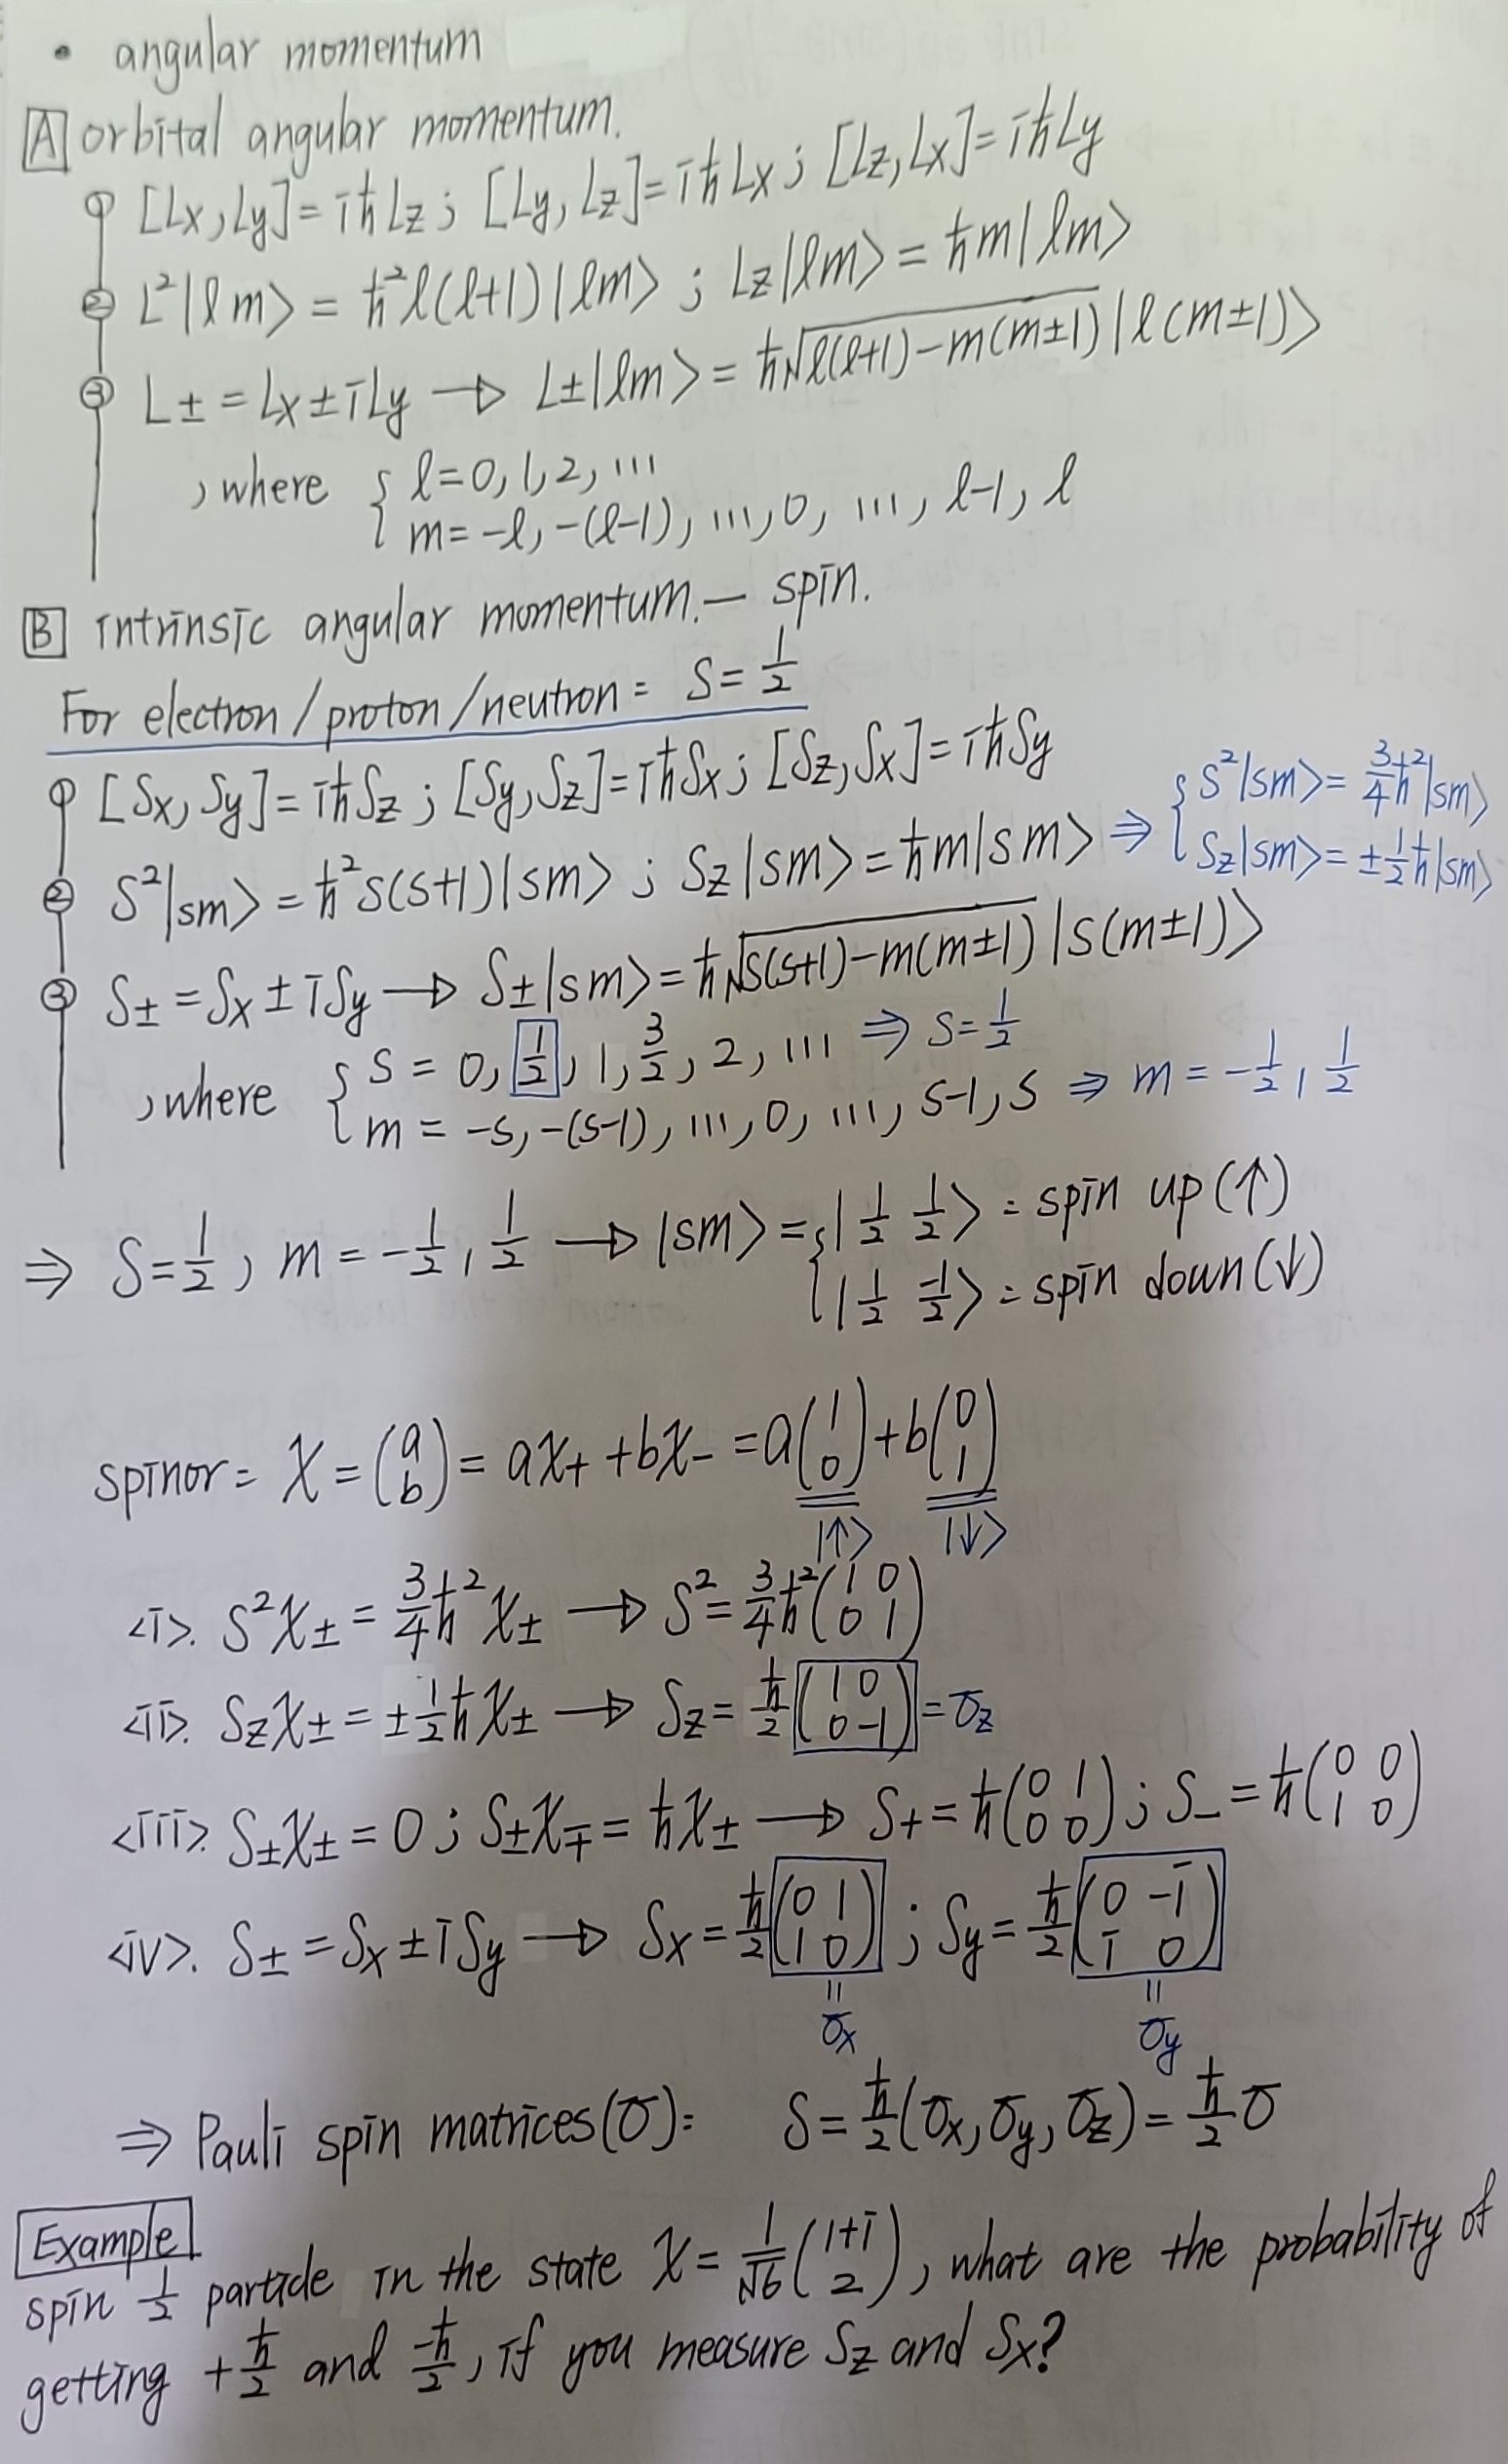 • angular momentum
[A] orbital angular momentum.
① [Lx, Ly] = iħLz ; [Ly, Lz] = iħLx ; [Lz, Lx] = iħLy
② L²|lm⟩ = ħ²l(l+1)|lm⟩ ; Lz|lm⟩ = ħm|lm⟩
③ L± = Lx ± iLy → L±|lm⟩ = ħ√(l(l+1)-m(m±1)) |l(m±1)⟩
, where { l = 0, 1, 2, ...
m = -l, -(l-1), ..., 0, ..., l-1, l
[B] intrinsic angular momentum. — spin.
For electron/proton/neutron = S = 1/2
① [Sx, Sy] = iħSz ; [Sy, Sz] = iħSx ; [Sz, Sx] = iħSy
② S²|sm⟩ = ħ²s(s+1)|sm⟩ ; Sz|sm⟩ = ħm|sm⟩ ⇒ { S²|sm⟩ = 3/4 ħ²|sm⟩
Sz|sm⟩ = ±1/2 ħ|sm⟩
③ S± = Sx ± iSy → S±|sm⟩ = ħ√(s(s+1)-m(m±1)) |s(m±1)⟩
, where { S = 0, 1/2, 1, 3/2, 2, ... ⇒ S = 1/2
m = -s, -(s-1), ..., 0, ..., s-1, s ⇒ m = -1/2, 1/2
⇒ S = 1/2, m = -1/2, 1/2 → |sm⟩ = { |1/2 1/2⟩ = spin up (↑)
|1/2 -1/2⟩ = spin down (↓)
spinor = χ = (a b) = aχ+ + bχ- = a(1 0) + b(0 1)
|↑⟩ |↓⟩
<i>. S²χ± = 3/4 ħ² χ± → S² = 3/4 ħ² (1 0 0 1)
<ii>. Szχ± = ±1/2 ħ χ± → Sz = ħ/2 (1 0 0 -1) = σz
<iii>. S±χ± = 0 ; S±χ∓ = ħχ± → S+ = ħ(0 1 0 0) ; S- = ħ(0 0 1 0)
<iv>. S± = Sx ± iSy → Sx = ħ/2 (0 1 1 0) ; Sy = ħ/2 (0 -i i 0)
= σx = σy
⇒ Pauli spin matrices (σ) = S = ħ/2 (σx, σy, σz) = ħ/2 σ
Example
spin 1/2 particle in the state χ = 1/√6 (1+i 2), what are the probability of
getting +ħ/2 and -ħ/2, if you measure Sz and Sx?